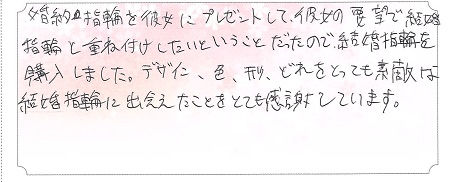 婚約指輪を彼女にプレゼントして、彼女の要望で結婚
指輪と重ね付けしたいということだったので、結婚指輪を
購入しました。デザイン、色、形、どれをとっても素敵な
結婚指輪に出会えたことをとても感謝しています。